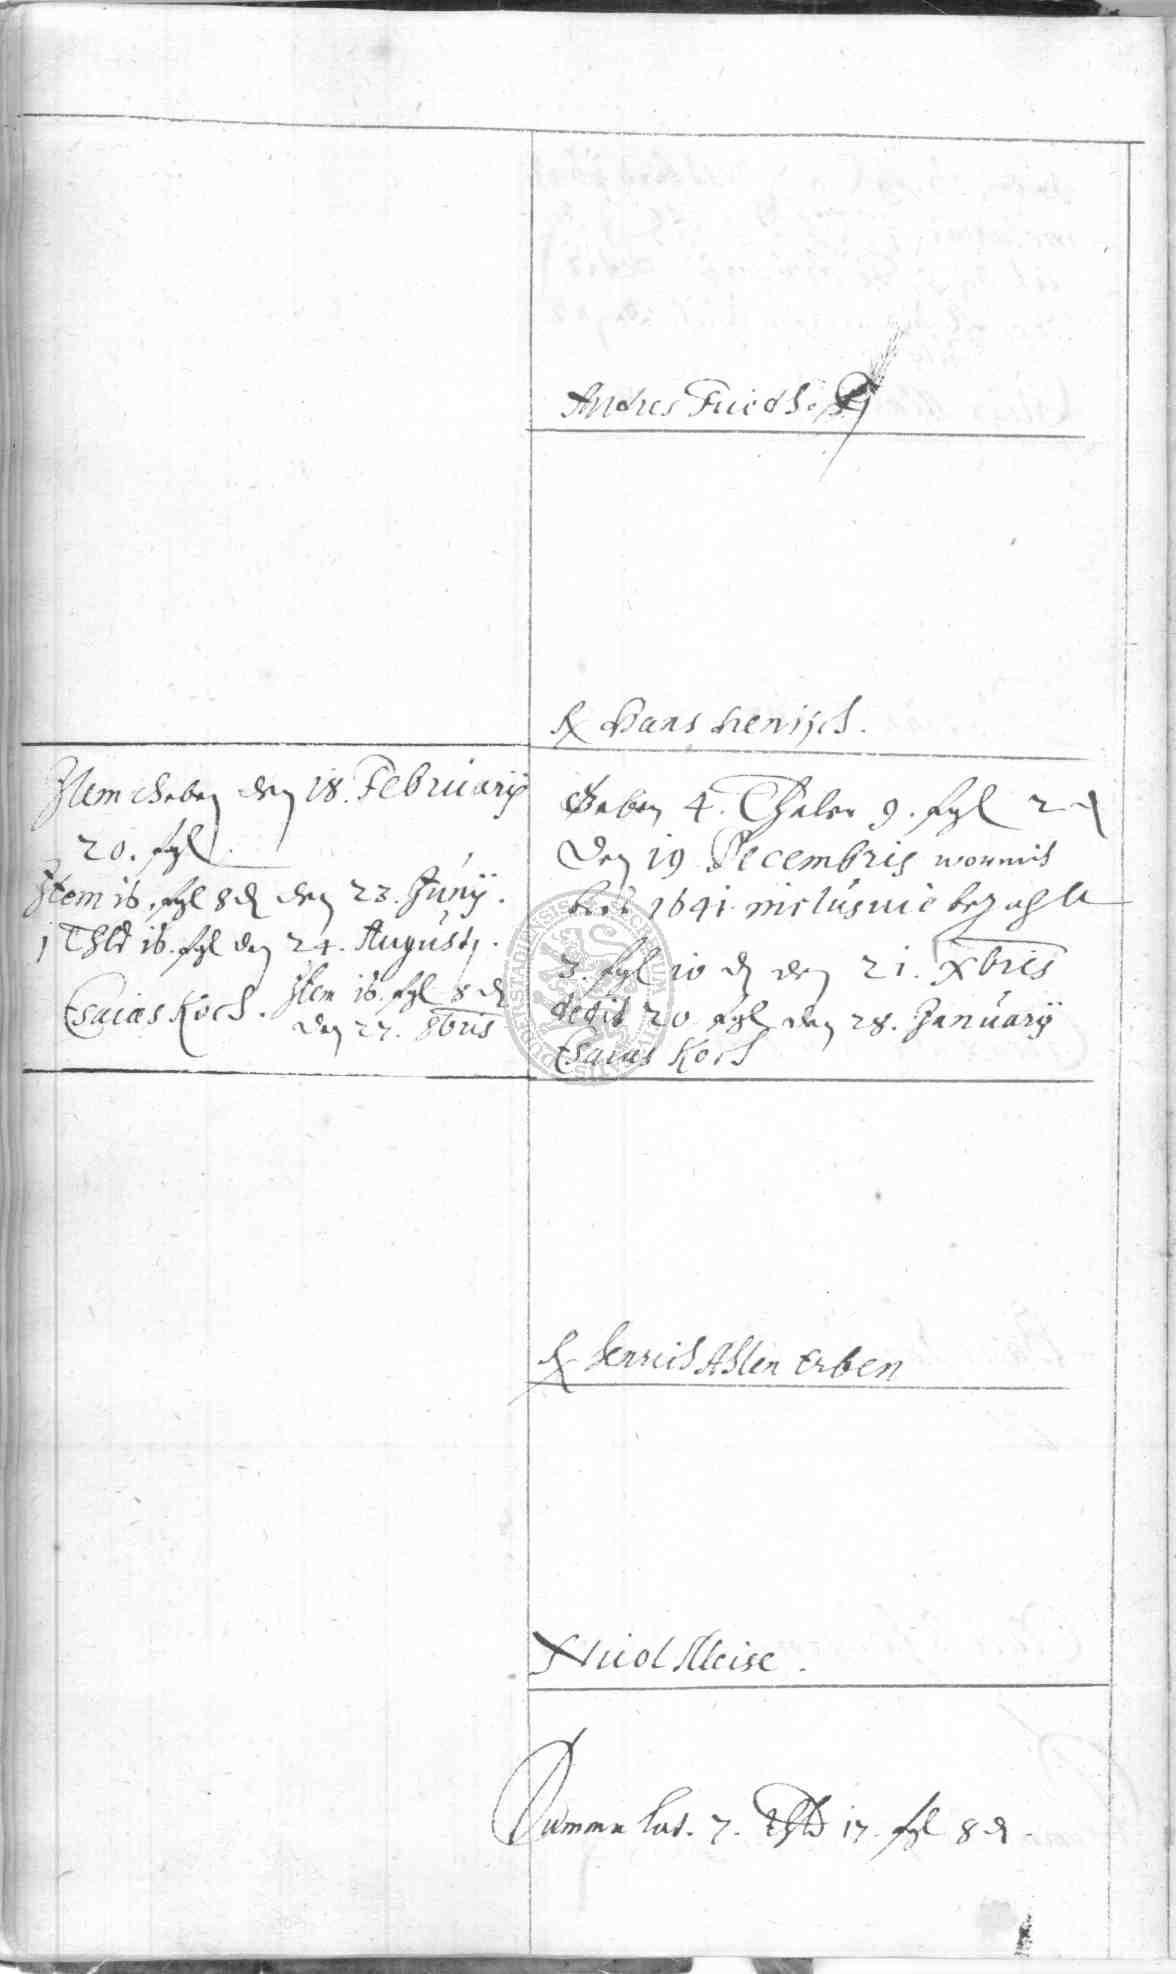 Andres Friedho
Hans henisch.
Item Geben den 18. Februarÿ
20. ßgl
Item 16. ßgl 8 ₰ den 23. Junÿ.
1 Thlr 16. ßgl den 24. Augustj.
Esaias Koch. Item 16. ßgl 8 ₰
den 27. 8bris
Geben 4. Thaler 9. ßgl 2 ₰
den 19 Decembris wormit
biß 1641 inclusiuè bezahlt
3. ßgl 10 ₰ den 21. Xbris
dedit 20 ßgl den 28. Januarÿ
Esaias Koch
henrich Ahlen Erben
Nicol Meise.
Summa lat. 7. Thlr 17. ßgl 8 ₰